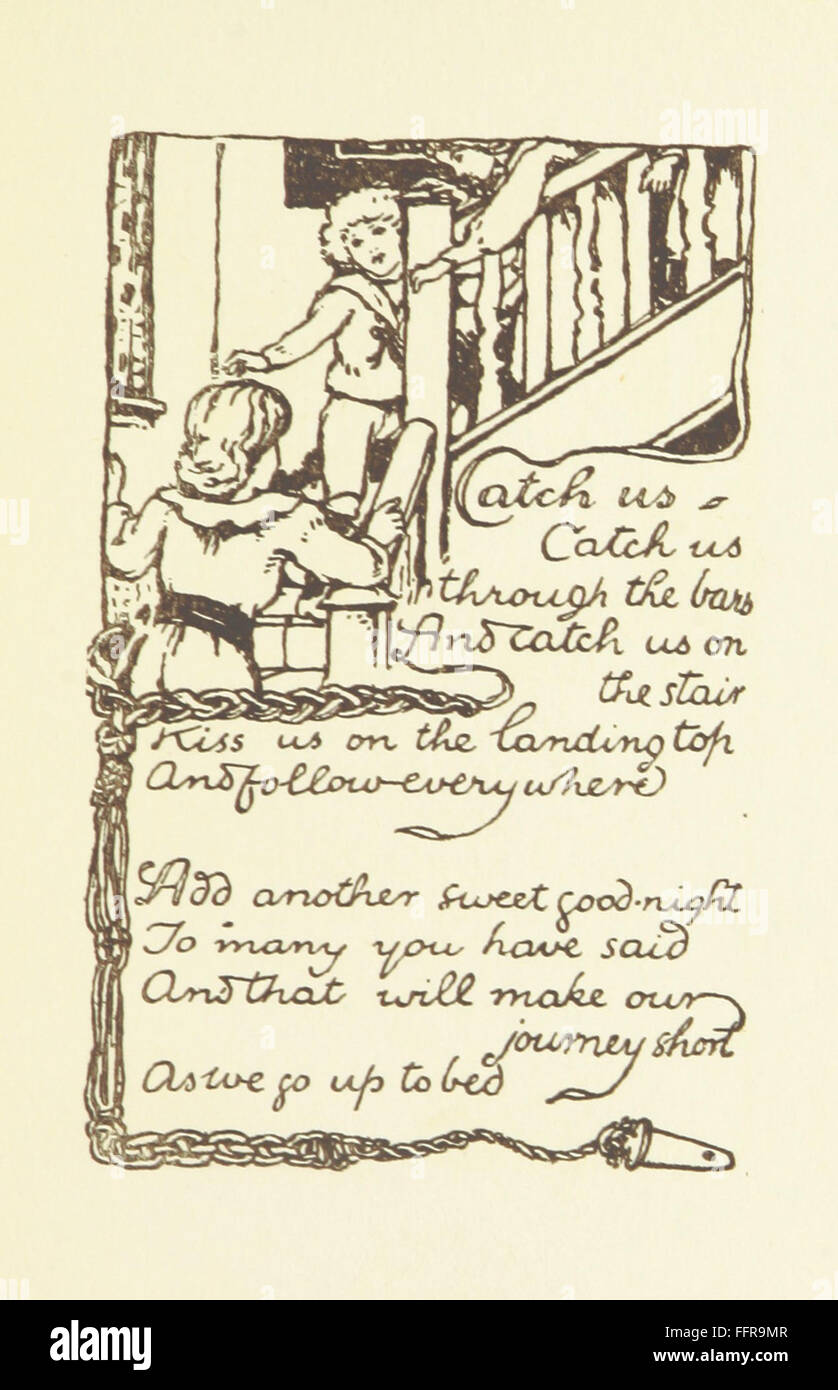 Catch us -
Catch us
through the bars
And catch us on
the stair
Kiss us on the landing top
And follow everywhere
Add another sweet good-night
To many you have said
And that will make our
journey short
As we go up to bed
alamy
Image ID: FFR9MR
www.alamy.com